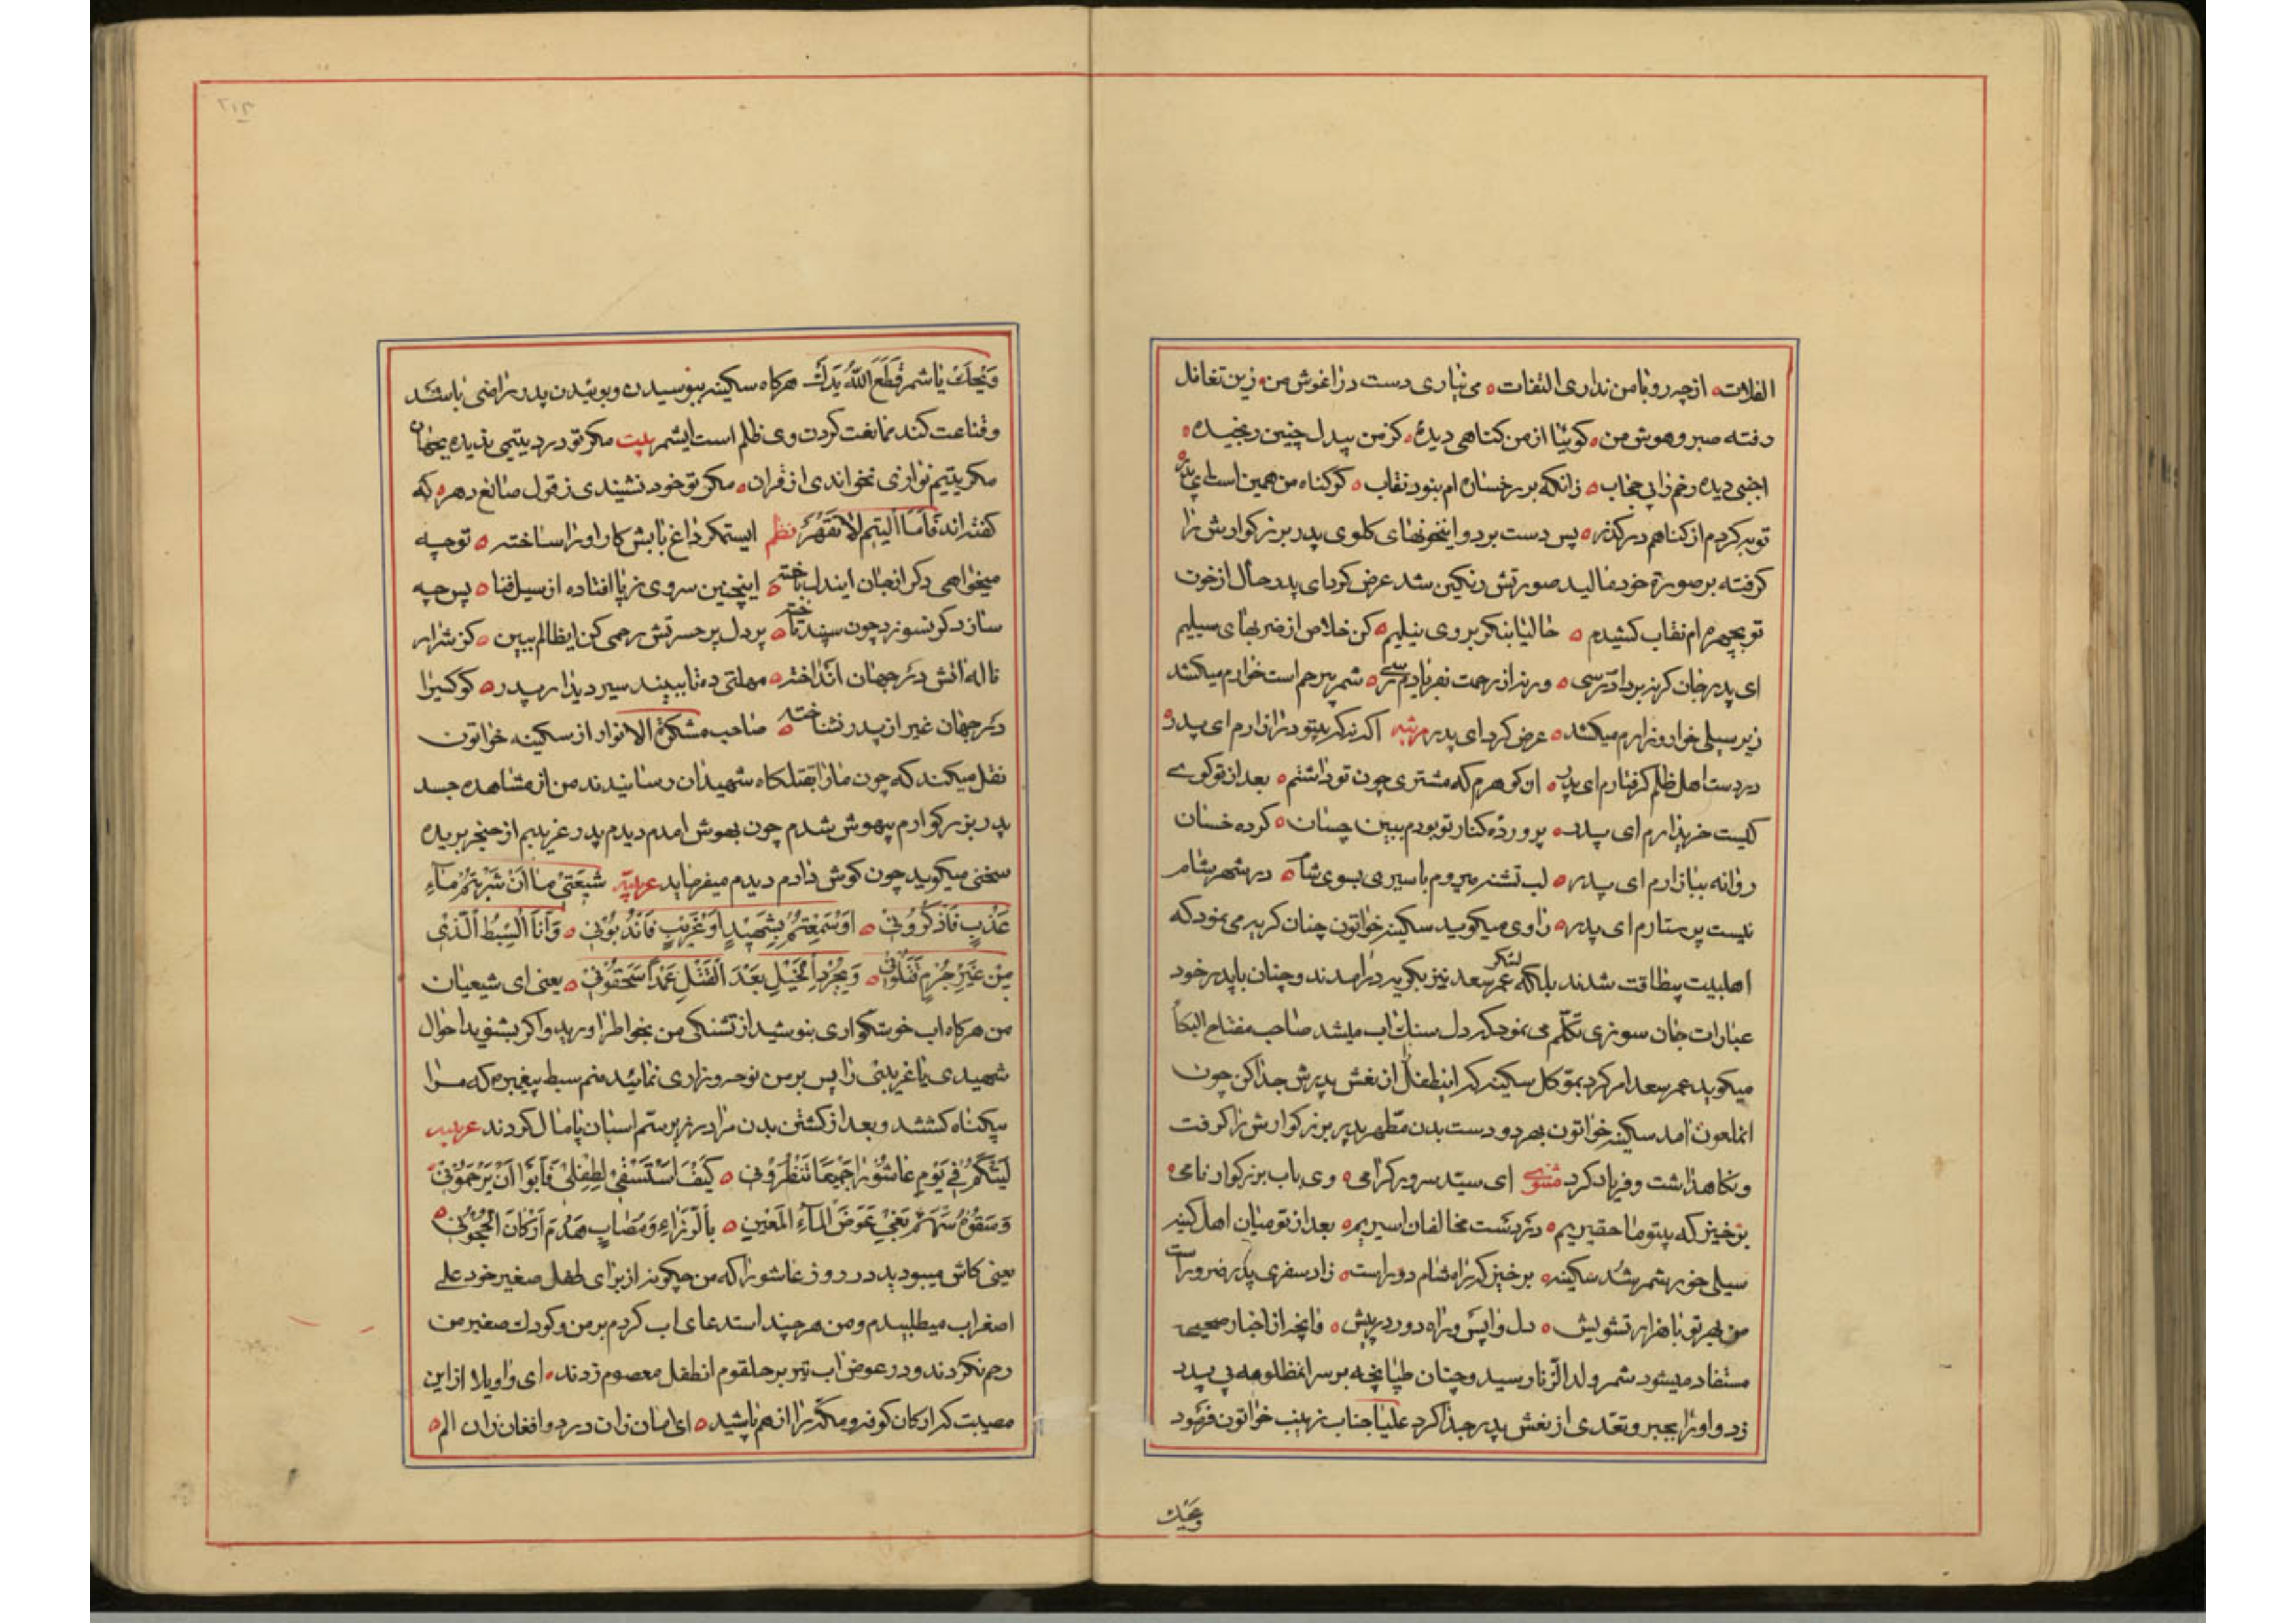 الفلات ازچه رو با من نداری التفات می نیاری دست در اغوش من زین تغافل
رفته صبر و هوش من کوئیا از من کناهی دیدهٔ کز من بیدل چنین رنجیدهٔ
اجنبی دیده رخم را بی حجاب زانکه بر رخساره ام بنود نقاب کر کناه من همین است ای پدر
توبه کردم از کناهم در کذر پس دست برد و اینخونهای کلوی پدر بزرکوارش را
کرفته بر صورة خود مالید صورتش رنکین شد عرض کرد ای پدر حال از خون
تو بچهره ام نقاب کشیدم حالیا بنکر بروی نیلیم کن خلاص از ضربهای سیلیم
ای پدر جان کر نبر دادرسی ورنه از رحمت بفریادم رسی شمر بیرحم است خوارم میکشد
زیر سیلی خوار و زارم میکشد عرض کرد ای پدر مرثیه اکرنه کریبتو دراز ارم ای پدر
در دست اهل ظلم کرفتارم ای پدر ان کوهرم که مشتری چون تو داشتم بعد از تو کوے
کیست خریدارم ای پدر پروردهٔ کنار تو بودم ببین چسان کرده خسان
روانه ببازارم ای پدر لب تشنه میروم باسیری بسوی شام در شهر شام
نیست پرستارم ای پدر راوی میکوید سکینه خواتون چنان کریه می نمود که
اهلبیت بیطاقت شدند بلکه لشکر عمر سعد نیز بکریه درامدند و چنان با پدر خود
عبارات جان سوزی تکلّم می نمود که دل سنك اب میشد صاحب مفتاح البکاء
میکوید عمر سعد امر کرد بموکل سکینه که اینطفل را از نعش پدرش جدا کن چون
انملعون امد سکینه خواتون بهر دو دست بدن مطهر پدر بزرکوارش را کرفت
و نکاهداشت و فریاد کرد مثنوی ای سیّد سرور کرامی وی باب بزرکوار نامی
برخیز که بیتو ما حقیریم در دست مخالفان اسیریم بعد از تو میان اهل کینه
سیلی خور شمر شد سکینه برخیز که راه شام دور است زاد سفری پدر ضرور است
من بهر تو با هزار تشویش دل واپس و راه دور در پیش و انچه از اخبار صحیحه
مستفاد میشود شمر ولد الزنا رسید و چنان طپانچه بر سر انمظلومه بی پدر
زد و او را بجبر و تعدّی از نعش پدر جدا کرد علیا جناب زینب خواتون فرمود
ویحك
وَیْحَكَ یا شمر قَطَعَ اللّٰهُ یَدَكَ هرکاه سکینه ببوسیدن و بوئیدن پدر راضی باشد
و قناعت کند ممانعت کردن وی ظلم است ایشمر بیت مکر تو درد یتیمی ندیدهٔ بجهان
مکر یتیم نوازی نخواندی از قران مکر تو خود نشنیدی ز قول صانع دهر که
کفته اند فَاَمَّا الْیَتِیمَ لَا تَقْهَرْ نظم ایستمکر داغ بابش کار او را ساخته تو چه
میخواهی دکر از جان ایندل باخته اینچنین سروی ز پا افتاده از سیل فنا پس چه
سازد کر نسوزد چون سپند تاخته بر دل پر حسرتش رحمی کن ایظالم ببین کز شرار
ناله اتش در جهان انداخته مهلتی ده تا ببیند سیر دیدار پدر کو کسیرا
در جهان غیر از پدر نشناخته صاحب مشکوة الانوار از سکینه خواتون
نقل میکند که چون ما را بقتلکاه شهیدان رسانیدند من از مشاهده جسد
پدر بزرکوارم بیهوش شدم چون بهوش امدم دیدم پدر غریبم از حنجر بریده
سخنی میکوید چون کوش دادم دیدم میفرماید عربیّه شیعَتی ما اَنْ شَرِبْتُم ماءَ
عَذْبٍ فَاذْکُرُونی اَوْ سَمِعْتُمْ بِشَهیدٍ اَوْ غَریبٍ فَانْدُبُونی وَ اَنَا السِّبْطُ الَّذی
مِنْ غَیْرِ جُرْمٍ قَتَلُونی وَ بِجُرْدِ الْخَیْلِ بَعْدَ الْقَتْلِ عَمْدًا سَحَقُونی یعنی ای شیعیان
من هرکاه اب خوشکواری بنوشید از تشنکی من بخواطر اورید و اکر بشنوید احوال
شهیدی یا غریبی را پس بر من نوحه و زاری نمائید منم سبط پیغمبر که مرا
بیکناه کشتند و بعد از کشتن بدن مرا در زیر ستم اسبان پامال کردند عربیه
لَیْتَکُمْ فی یَوْمِ عاشُورا جَمیعًا تَنْظُرُونی کَیْفَ اَسْتَسْقی لِطِفْلی فَاَبَوْا اَنْ یَرْحَمُونی
وَ سَقَوْهُ سَهْمَ بَغْیٍ عِوَضَ الْمَاءِ الْمَعینِ یا لَرُزْءٍ وَ مُصابٍ هَدَّمَ اَرْکانَ الْحَجُونِ
یعنی کاش میبودید در روز عاشورا که من چکونه از برای طفل صغیر خود علے
اصغر اب میطلبیدم و من هر چند استدعای اب کردم بر من و کودك صغیر من
رحم نکردند و در عوض اب تیر بر حلقوم انطفل معصوم زدند ای واویلا از این
مصیبت که ارکان کوه و مکّه را از هم پاشید ای امان زان درد و افغان زان الم
۲۱۳